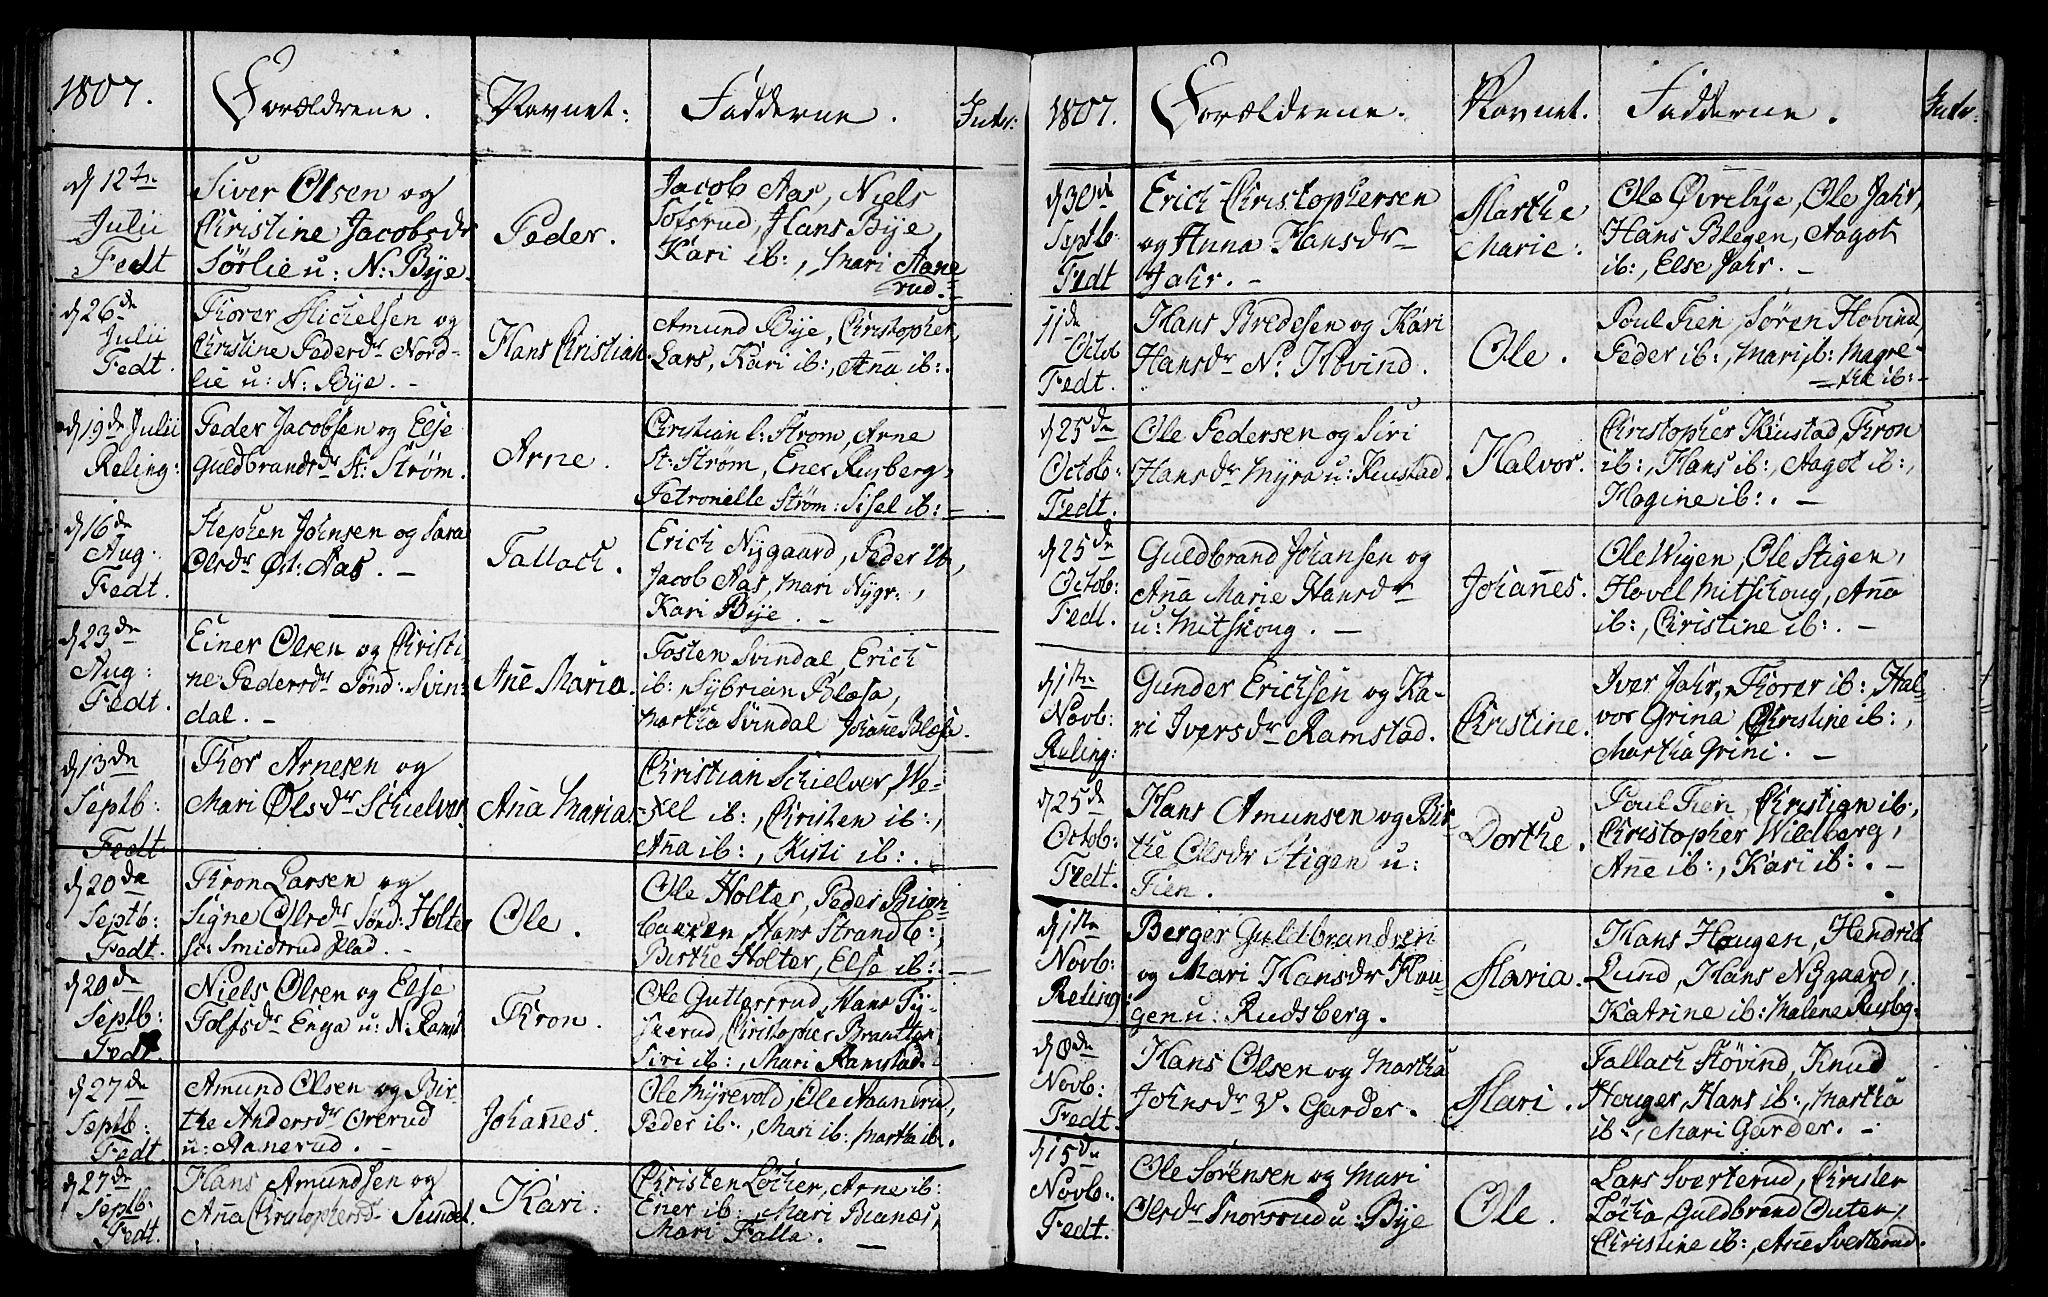 1807.
Forældrene.
Navnet:
Fadderne.
Intr:
d 12te
Julii
Fedt
Siver Olsen og
Christine Jacobsdr
Sørlie u: N: Bye.
Peder.
Jacob Aas, Niels
Tofsrud, Hans Bye,
Kari ib:, Mari Aane
rud.
d 26de
Julii
Fedt.
Thorer Michelsen og
Christine Pedersdr Nord-
lie u: N: Bye. -
Hans Christian.
Amund Bye, Christopher,
Lars, Kari ib:, Anna ib:.
d 19de Julii
Reling:
Peder Jacobsen og Else
Guldbrandsdr St: Strøm.
Arne.
Christian l: Strøm, Arne
St: Strøm, Ener Ruberg,
Petronelle Strøm: Sisel ib: -
d 16de
Aug:
Fedt.
Stephen Johnsen og Sara
Olsdr Øst: Aas. -
Tallach.
Erich Nygaard, Peder ib,
Jacob Aas, Mari Nygr:,
Kari Bye. -
d 23de
Aug:
Fedt.
Einer Olsen og Christi-
ne Pedersdr Sønd: Svin-
dal. -
Añe Maria.
Tosten Svindal, Erich
ib: Sybrian Blæsa,
Martha Svindal Johañe Blæsa.
d 13de
Septb:
Fedt
Thor Arnesen og
Mari Olsdr Schielver.
Aña Maria.
Christian Schielver, We-
xel ib:, Christen ib:,
Aña ib:, Kisti ib:.
d 20de
Septb:
Fedt.
Thron Larsen og
Signe Olsdr Sønd: Holter
Smidsrud Plad. -
Ole.
Ole Holter, Peder Biøn-
Hans Strandb:,
Birthe Holter, Else ib: -
d 20de
Septb:
Fedt.
Niels Olsen og Else
Tolfsdr Enga u: N. Ramst
Thron.
Ole Guttersrud, Hans Ty-
skerud, Christopher
Siri ib:, Mari Ramstad.
d 27de
Septb:
Fedt.
Amund Olsen og Bir-
the Andersdr Ovreud
u: Aanerud. -
Johañes.
Ole Myrevold, Ole Aanerud,
Peder ib:, Mari ib: Martha ib.
d 27de
Septb:
Fedt.
Hans Amundsen og
Aña Christophersdr
Kari.
Christen Løcher, Arne ib:
Ener ib:, Mari Bianes,
Mari Falla. -
1807.
Forældrene.
Navnet.
Fadderne.
Intr.
d 30te
Septb:
Fedt
Erich Christophersen
og Anna Hansdr
Jahr. -
Marthe
Marie.
Ole Øvrebye, Ole Jahr,
Hans Blegen, Aagot
ib:, Else Jahr. -
11de
Octob
Fedt.
Hans Bredesen og Kari
Hansdr N. Hovind.
Ole.
Poul Fien, Søren Hovind,
Peder ib:, Mari ib: Magre-
the ib: -
d 25de
Octob:
Fedt.
Ole Pedersen og Siri
Hansdr Myra u: Kiustad.
Halvor.
Christopher Kiustad, Thron
ib:, Hans ib:, Aagot ib:,
Hagine ib:. -
d 25de
Octob:
Fedt.
Guldbrand Johansen og
Aña Marie Hansdr
u: Mitskoug. -
Johañes.
Ole Wigen, Ole Stigen,
Hovel Mitskoug, Aña
ib:, Christine ib:. -
d 1te
Novb:
Reling:
Gunder Erichsen og Ka-
ri Iversdr Ramstad.
Christine.
Iver Jahr, Thorer ib: Hal-
vor Grina, Christine ib:,
Martha Grini. -
d 25de
Octob:
Fedt.
Hans Amunsen og Bir-
the Olsdr Stigen u:
Fien.
Dorthe.
Poul Fien, Christian ib:,
Christopher Wildberg,
Añe ib:, Kari ib:. -
d 1te
Novb:
Reling:
Berger Guldbrandsen
og Mari Hansdr Hou-
gen u: Rudsberg.
Maria.
Hans Hougen, Hendrik
Lund, Hans Nygaard,
Katrine ib: Malene Rusbg:
d 8de
Novb:
Fedt.
Hans Olsen og Martha
Johnsdr V. Garder.
Mari.
Tallach Hovind, Knud
Houger, Hans ib:, Martha
ib:, Mari Garder. -
d 15de
Novb:
Fedt.
Ole Sørensen og Mari
Olsdr Snorsrud u: Bye
Ole.
Lars Sverterud, Christer
Løcha, Guldbrand Outen,
Christine ib:, Añe Sverterud.